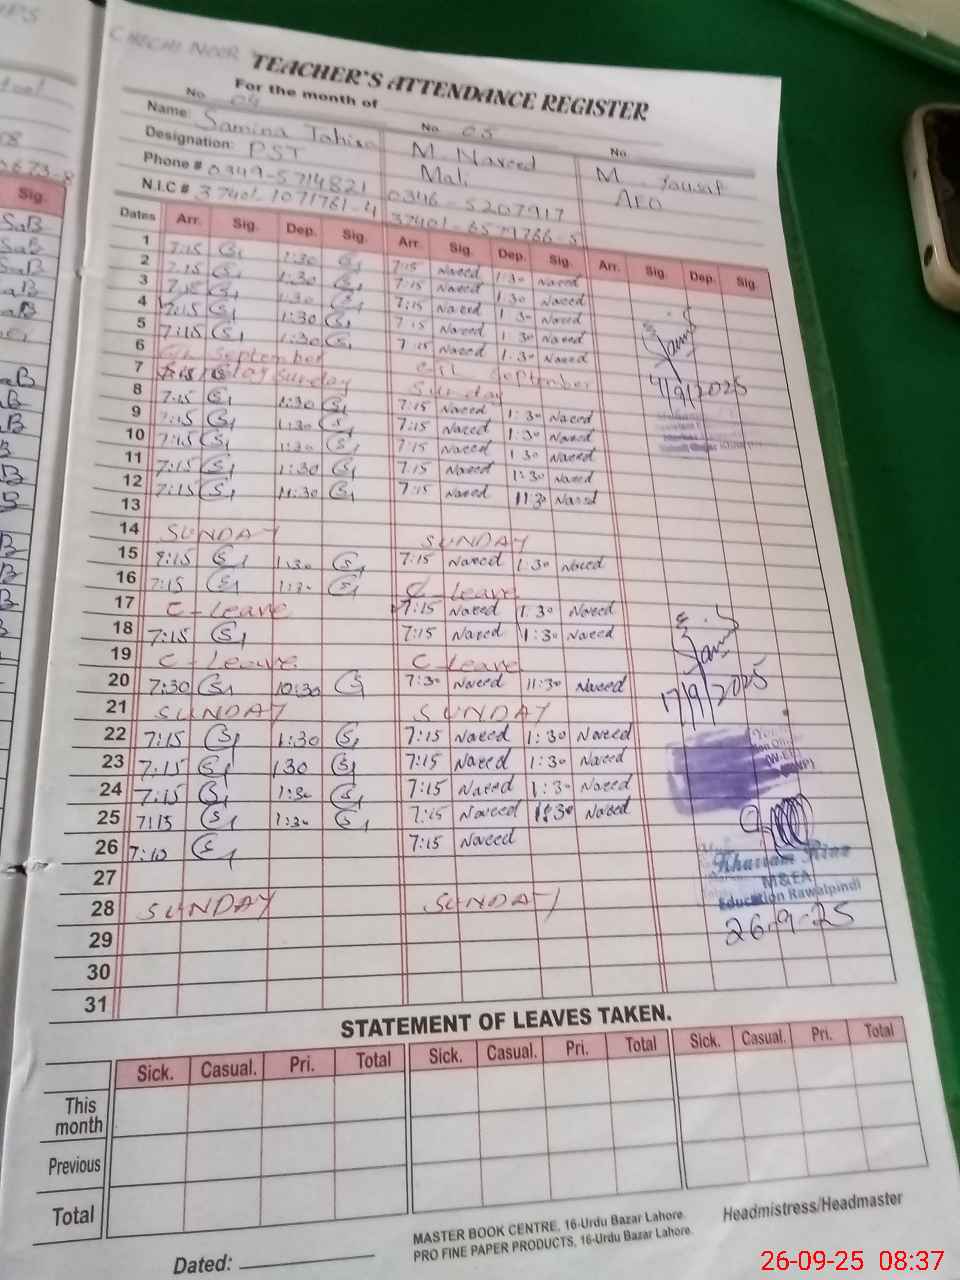 CHECHI NOOR
TEACHER'S ATTENDANCE REGISTER
For the month of
No. 04 No. 05 No.
Name: Samina Tahira M. Naveed M. Yousaf
Designation: PST Mali AEO
Phone # 0349-5714821 0346-5207917
N.I.C # 37401-1071761-4 37401-6579766-5
Dates Arr. Sig. Dep. Sig. Arr. Sig. Dep. Sig. Arr. Sig. Dep. Sig.
1 7:15 S 1:30 S 7:15 Naeed 1:30 Naeed
2 7:15 S 1:30 S 7:15 Naeed 1:30 Naeed
3 7:15 S 1:30 S 7:15 Naeed 1:30 Naeed
4 7:15 S 1:30 S 7:15 Naeed 1:30 Naeed
5 7:15 S 1:30 S 7:15 Naeed 1:30 Naeed
6 6th September 6th September
7 Sunday Sunday
4/9/2025
8 7:15 S 1:30 S 7:15 Naeed 1:30 Naeed
9 7:15 S 1:30 S 7:15 Naeed 1:30 Naeed
10 7:15 S 1:30 S 7:15 Naeed 1:30 Naeed
11 7:15 S 1:30 S 7:15 Naeed 1:30 Naeed
12 7:15 S 11:30 S 7:15 Naeed 11:30 Naeed
13
14 SUNDAY SUNDAY
15 7:15 S 1:30 S 7:15 Naeed 1:30 Naeed
16 7:15 S 1:30 S C-Leave
17 C-Leave 7:15 Naeed 1:30 Naeed
18 7:15 S 7:15 Naeed 1:30 Naeed
19 C-Leave C-Leave
20 7:30 S 10:30 S 7:30 Naeed 11:30 Naeed
17/9/2025
21 SUNDAY SUNDAY
22 7:15 S 1:30 S 7:15 Naeed 1:30 Naeed
23 7:15 S 130 S 7:15 Naeed 1:30 Naeed
24 7:15 S 1:30 S 7:15 Naeed 1:30 Naeed
25 7:15 S 1:30 S 7:15 Naeed 11:30 Naeed
26 7:10 S 7:15 Naeed
Khurram Riaz
M&EA
Education Rawalpindi
27
28 SUNDAY SUNDAY
26-9-25
29
30
31
STATEMENT OF LEAVES TAKEN.
Sick. Casual. Pri. Total Sick. Casual. Pri. Total Sick. Casual. Pri. Total
This month
Previous
Total
Dated:
MASTER BOOK CENTRE, 16-Urdu Bazar Lahore.
PRO FINE PAPER PRODUCTS, 16-Urdu Bazar Lahore.
Headmistress/Headmaster
26-09-25 08:37